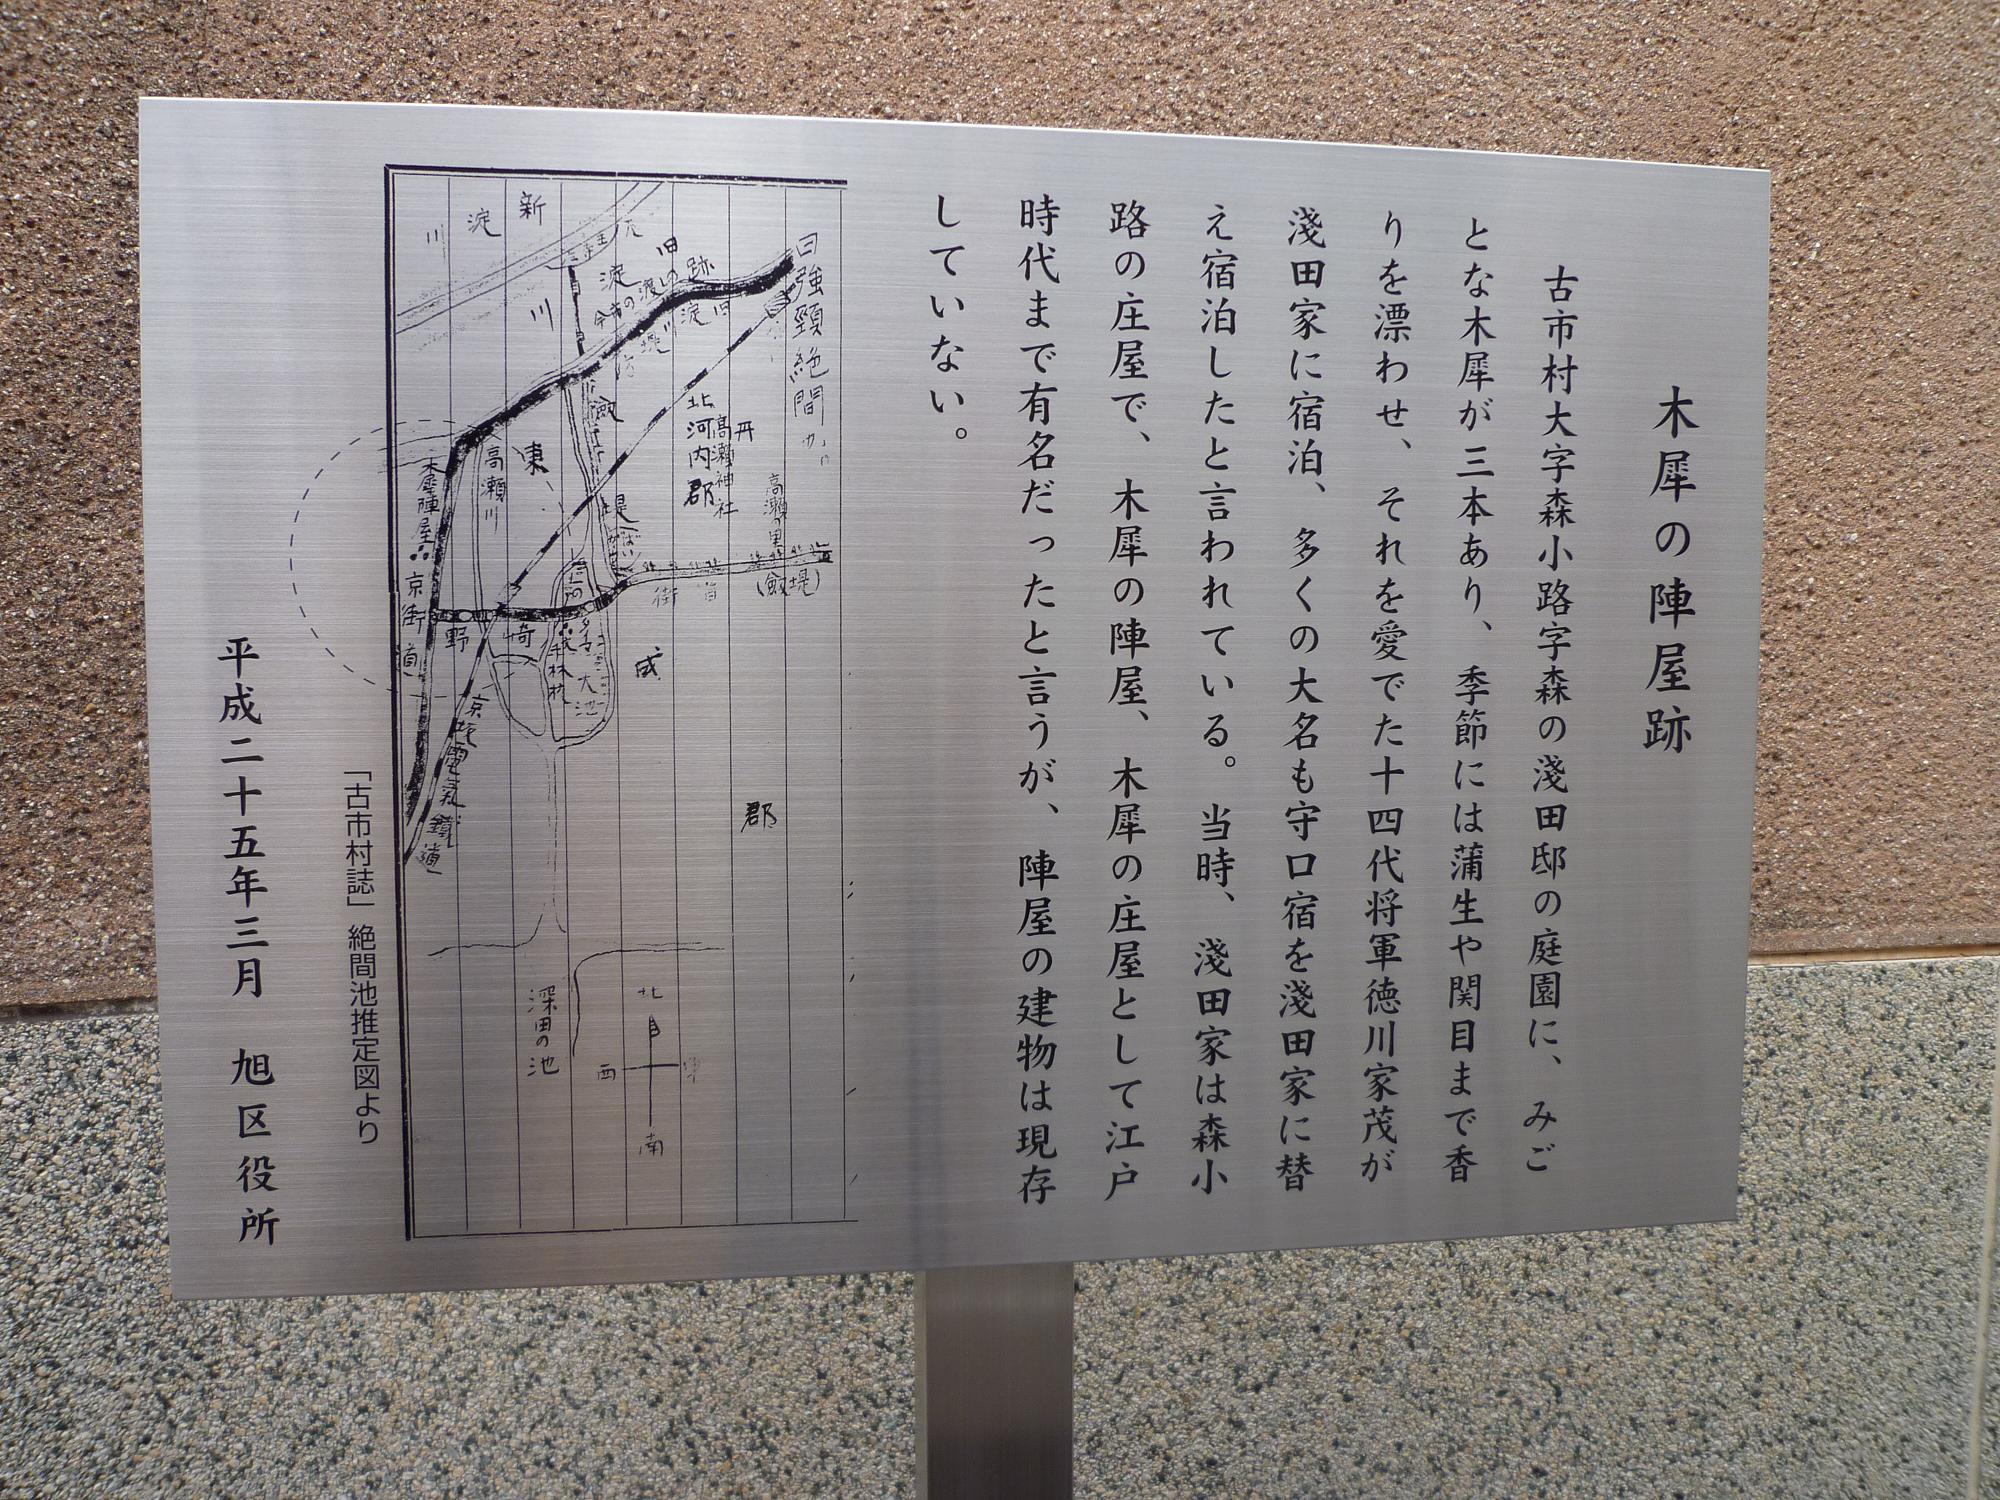 木犀の陣屋跡
古市村大字森小路字森の淺田邸の庭園に、みご
とな木犀が三本あり、季節には蒲生や関目まで香
りを漂わせ、それを愛でた十四代将軍徳川家茂が
淺田家に宿泊、多くの大名も守口宿を淺田家に替
え宿泊したと言われている。当時、淺田家は森小
路の庄屋で、木犀の陣屋、木犀の庄屋として江戸
時代まで有名だったと言うが、陣屋の建物は現存
していない。
強頸絶間
高瀬の里
(劔堤)
高瀬神社
北河内郡
郡
成
街道
旧淀川
旧淀川堤
今市の渡しの跡
新淀川
堤
大池
千林村
東
高瀬川
野
崎
木犀陣屋
京街道
京阪電気鐵道
深田の池
北
西
南
「古市村誌」絶間池推定図より
平成二十五年三月　旭区役所